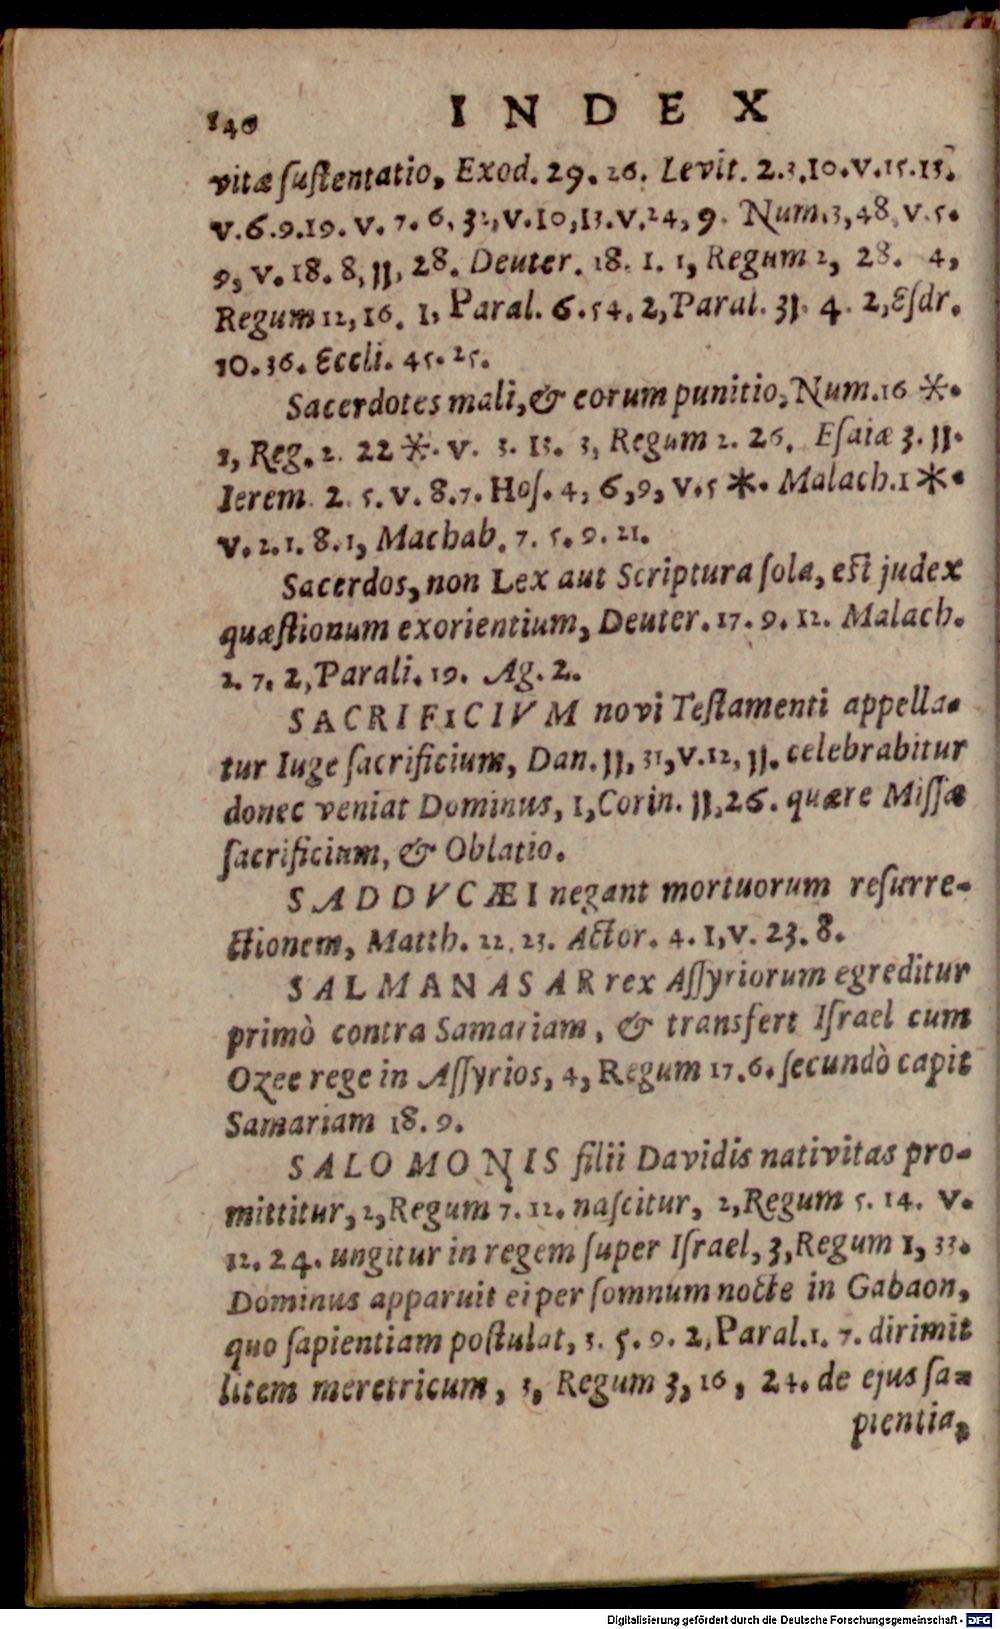 140 INDEX
vitæ ſuſtentatio, Exod. 29. 26. Levit. 2.3.10.v.15.13.
v.6.9.19. v. 7. 6. 32,v.10,13.v.24, 9. Num.3,48, v.5.
9, v. 18. 8, 11, 28. Deuter. 18. 1. 1, Regum 2, 28. 4,
Regum 12, 16. 1, Paral. 6.54. 2,Paral. 31. 4. 2,Eſdr.
10.36. Eccli. 45.25.
Sacerdotes mali,& eorum punitio, Num.16 *.
1, Reg. 2. 22 *. v. 3. 13. 3, Regum 2. 26. Eſaiæ 3. 11.
Ierem 2. 5. v. 8.7. Hoſ. 4, 6,9, v.5 *. Malach.1 *.
v.2.1.8.1, Machab. 7. 5. 9. 21.
Sacerdos, non Lex aut Scriptura ſola, eſt judex
quæſtionum exorientium, Deuter. 17. 9. 12. Malach.
2. 7. 2,Parali. 19. Ag. 2.
SACRIFICIVM novi Teſtamenti appella-
tur Iuge ſacrificium, Dan. 11, 31,v.12, 11. celebrabitur
donec veniat Dominus, 1,Corin. 11,26. quære Miſſæ
ſacrificium, & Oblatio.
SADDVCÆI negant mortuorum reſurre-
ctionem, Matth. 22. 23. Actor. 4. 1,v. 23. 8.
SALMANASAR rex Aſſyriorum egreditur
primò contra Samariam, & transfert Iſrael cum
Ozee rege in Aſſyrios, 4, Regum 17.6. ſecundò capit
Samariam 18. 9.
SALOMONIS filii Davidis nativitas pro-
mittitur, 2,Regum 7. 12. naſcitur, 2,Regum 5. 14. v.
12. 24. ungitur in regem ſuper Iſrael, 3,Regum 1, 33.
Dominus apparuit ei per ſomnum nocte in Gabaon,
quo ſapientiam poſtulat, 3. 5. 9. 2,Paral.1. 7. dirimit
litem meretricum, 3, Regum 3, 16, 24. de ejus ſa-
pientia,
Digitalisierung gefördert durch die Deutsche Forschungsgemeinschaft - DFG